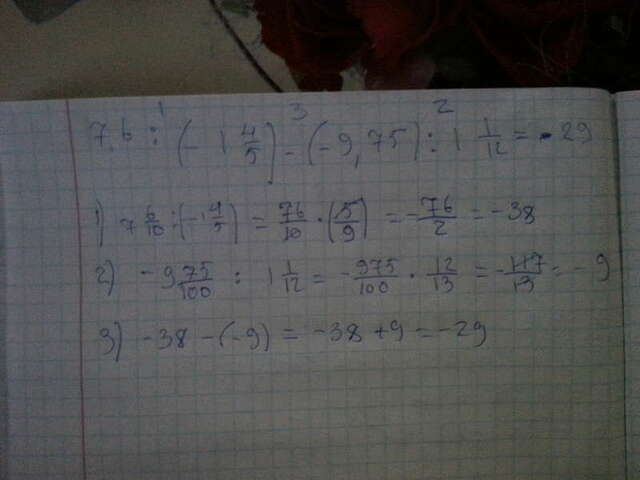 1 3 2
7,6 : (- 1 4/5) - (-9,75) : 1 1/12 = - 29
1) 7 6/10 : (-1 4/5) = 76/10 · (5/9) = - 76/2 = -38
2) -9 75/100 : 1 1/12 = - 975/100 · 12/13 = - 117/13 = - 9
3) -38 - (-9) = -38 + 9 = -29